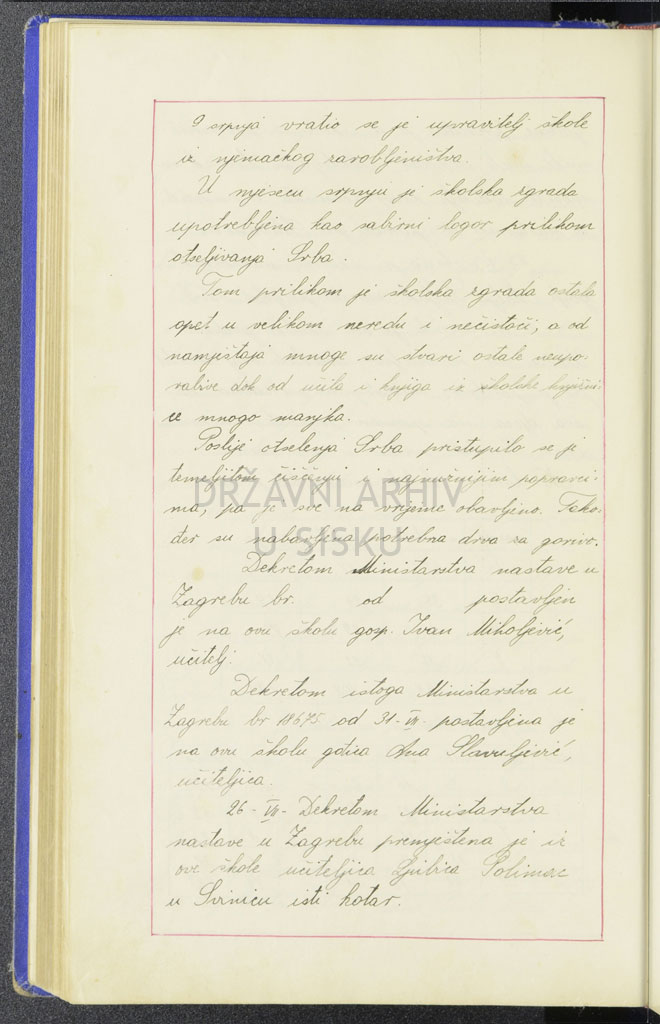 9 srpnja vratio se je upravitelj škole
iz njemačkog zarobljeništva.
U mjesecu srpnju je školska zgrada
upotrebljena kao sabirni logor prilikom
otseljivanja Srba.
Tom prilikom je školska zgrada ostala
opet u velikom neredu i nečistoći, a od
namještaja mnoge su stvari ostale neupo-
rabive dok od učila i knjiga iz školske knjižni-
ce mnogo manjka.
Poslije otselenja Srba pristupilo se je
temeljitom čišćenju i najnužnijim popravci-
ma, pa je sve na vrijeme obavljeno. Tako-
đer su nabavljena potrebna drva za gorivo.
DRŽAVNI ARHIV
U SISKU
Dekretom Ministarstva nastave u
Zagrebu br. od postavljen
je na ovu školu gosp. Ivan Miholjević,
učitelj.
Dekretom istoga Ministarstva u
Zagrebu br 11675 od 31-VII. postavljena je
na ovu školu gđica Ana Slavuljević,
učiteljica.
26-VII- Dekretom Ministarstva
nastave u Zagrebu premještena je iz
ove škole učiteljica Ljubica Polimac
u Svinicu isti kotar.